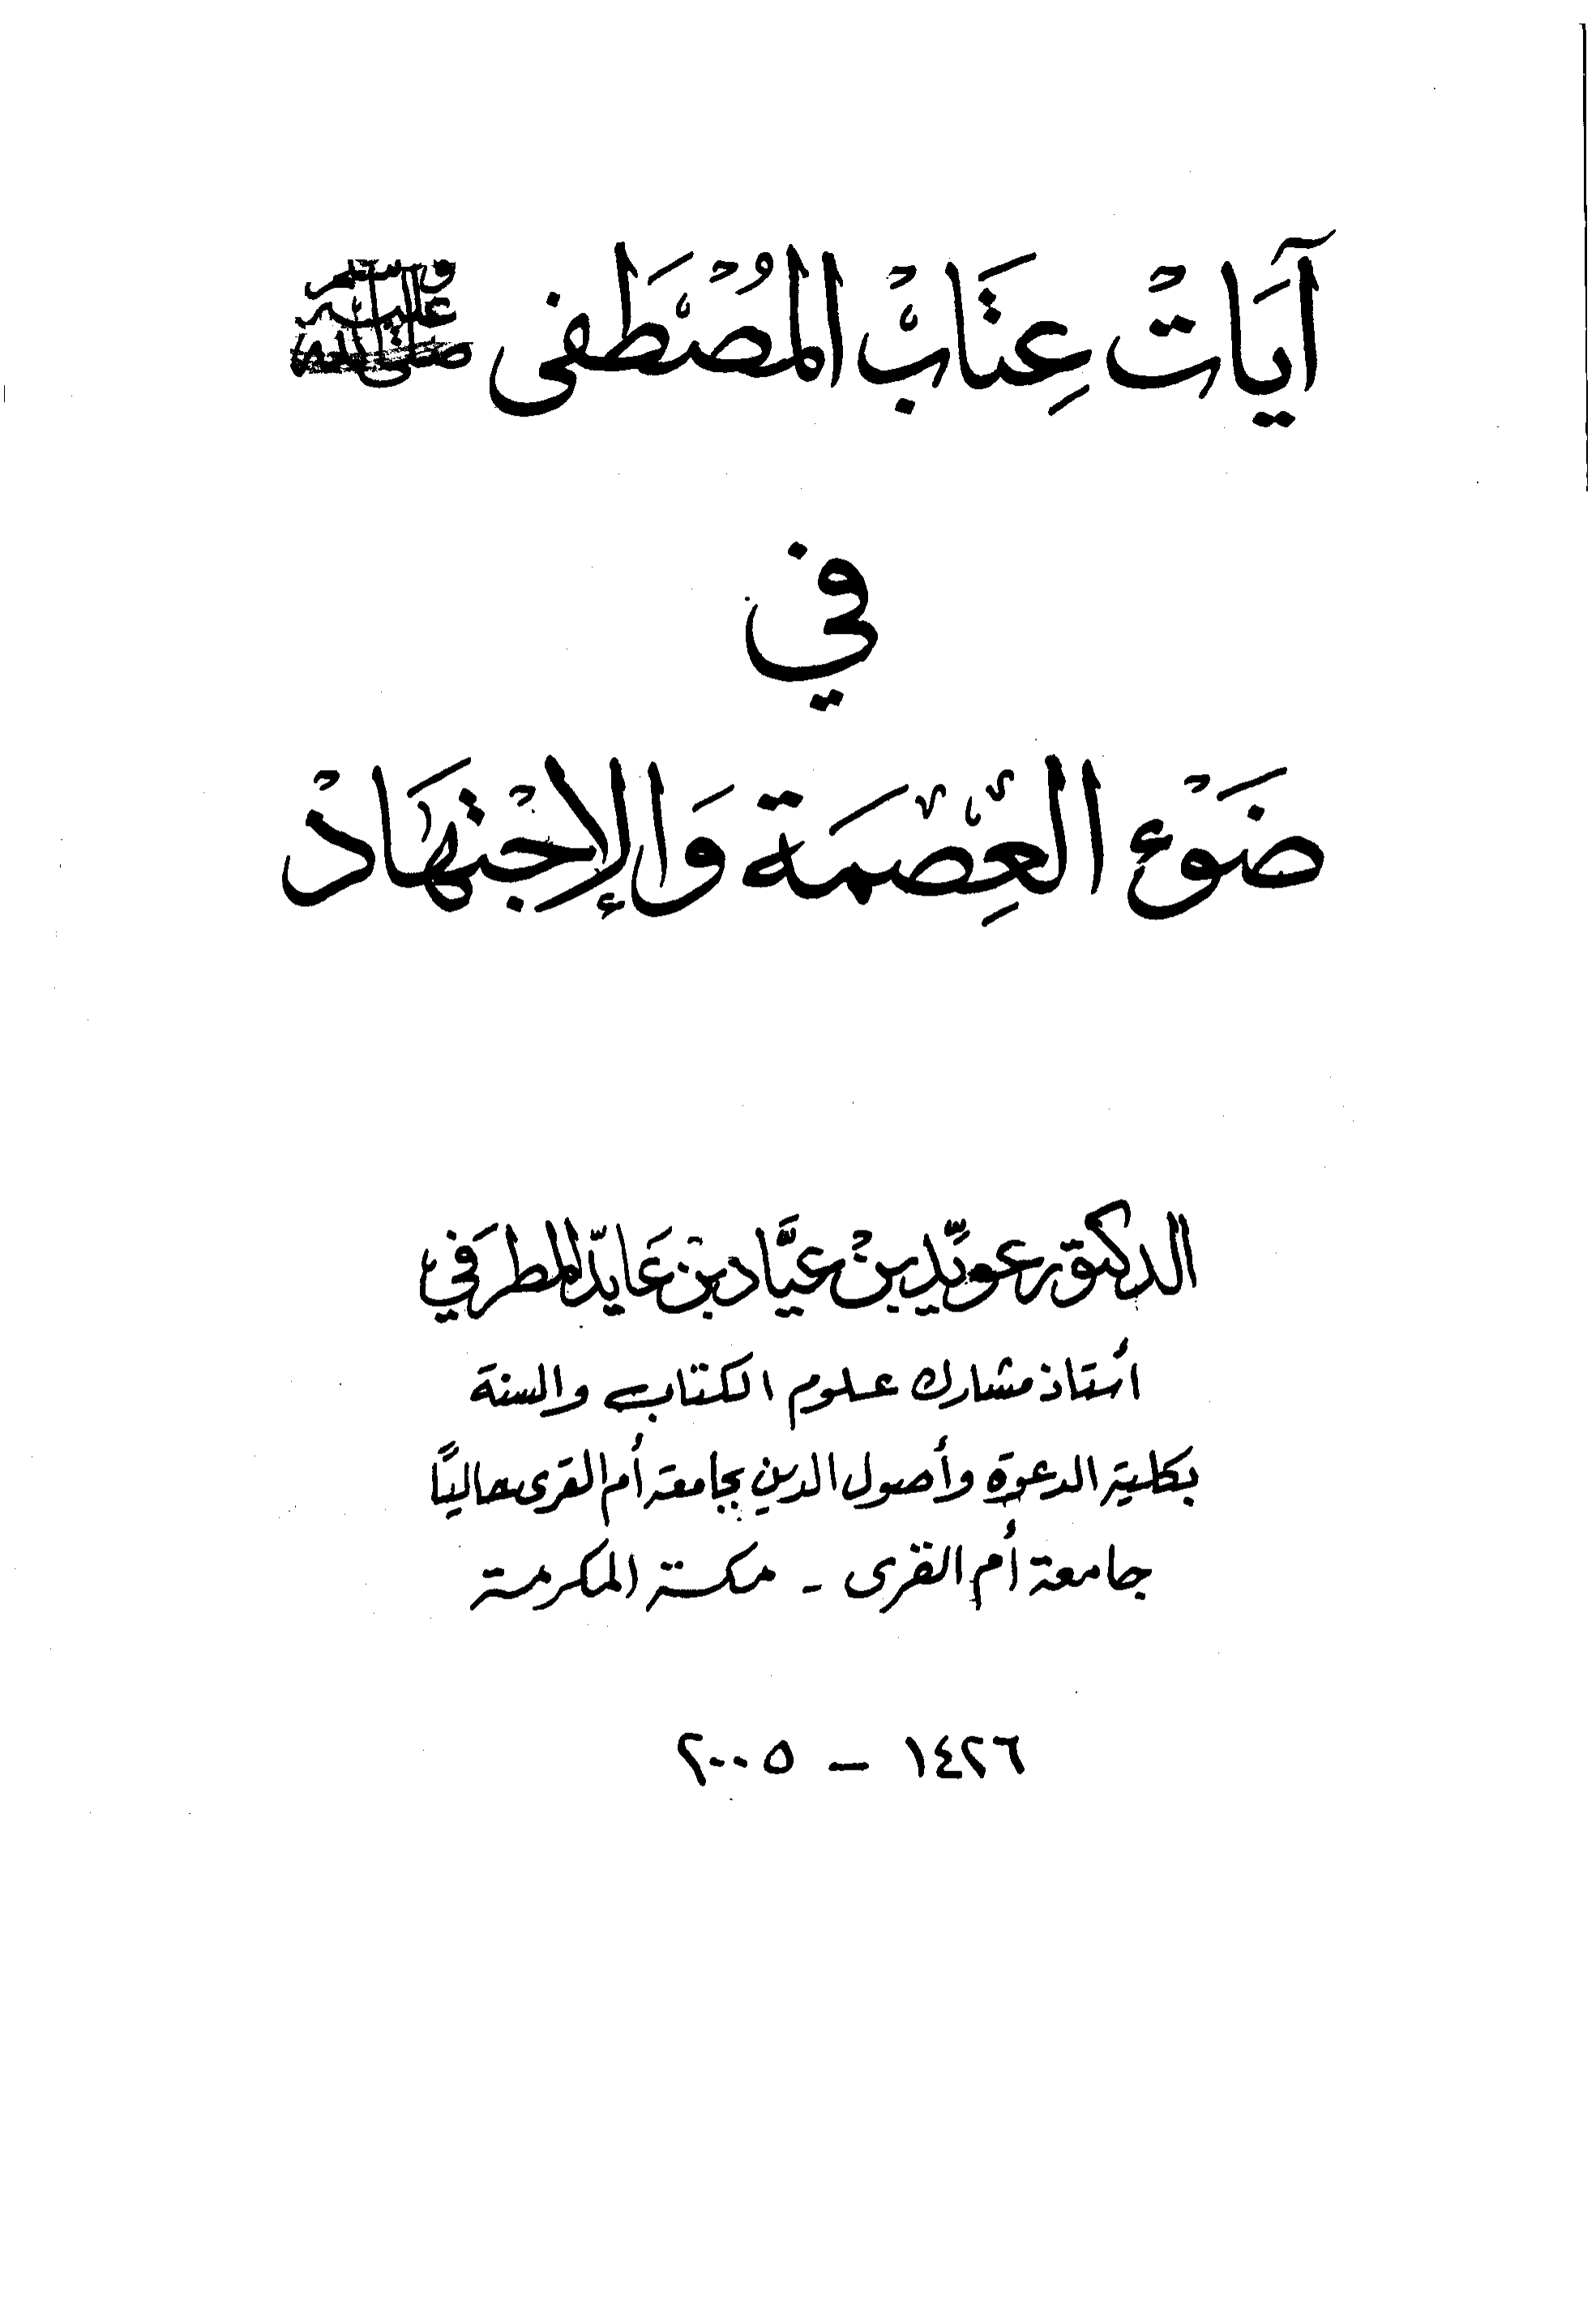 آيَاتْ عِتَابْ المُصْطَفى صلى الله عليه وسلم
في
ضَوْء العِصْمَة وَالإجْتهَادْ
الدكتور عويّد بنْ عيَّاد بنْ عَايد المطرَفي
أستاذ مشارك علوم الكتاب والسنة
بكلية الدعوة وأصول الدين بجامعة أم القرى حاليًا
جامعة أم القرى - مكة المكرمة
١٤٢٦ - ٢٠٠٥